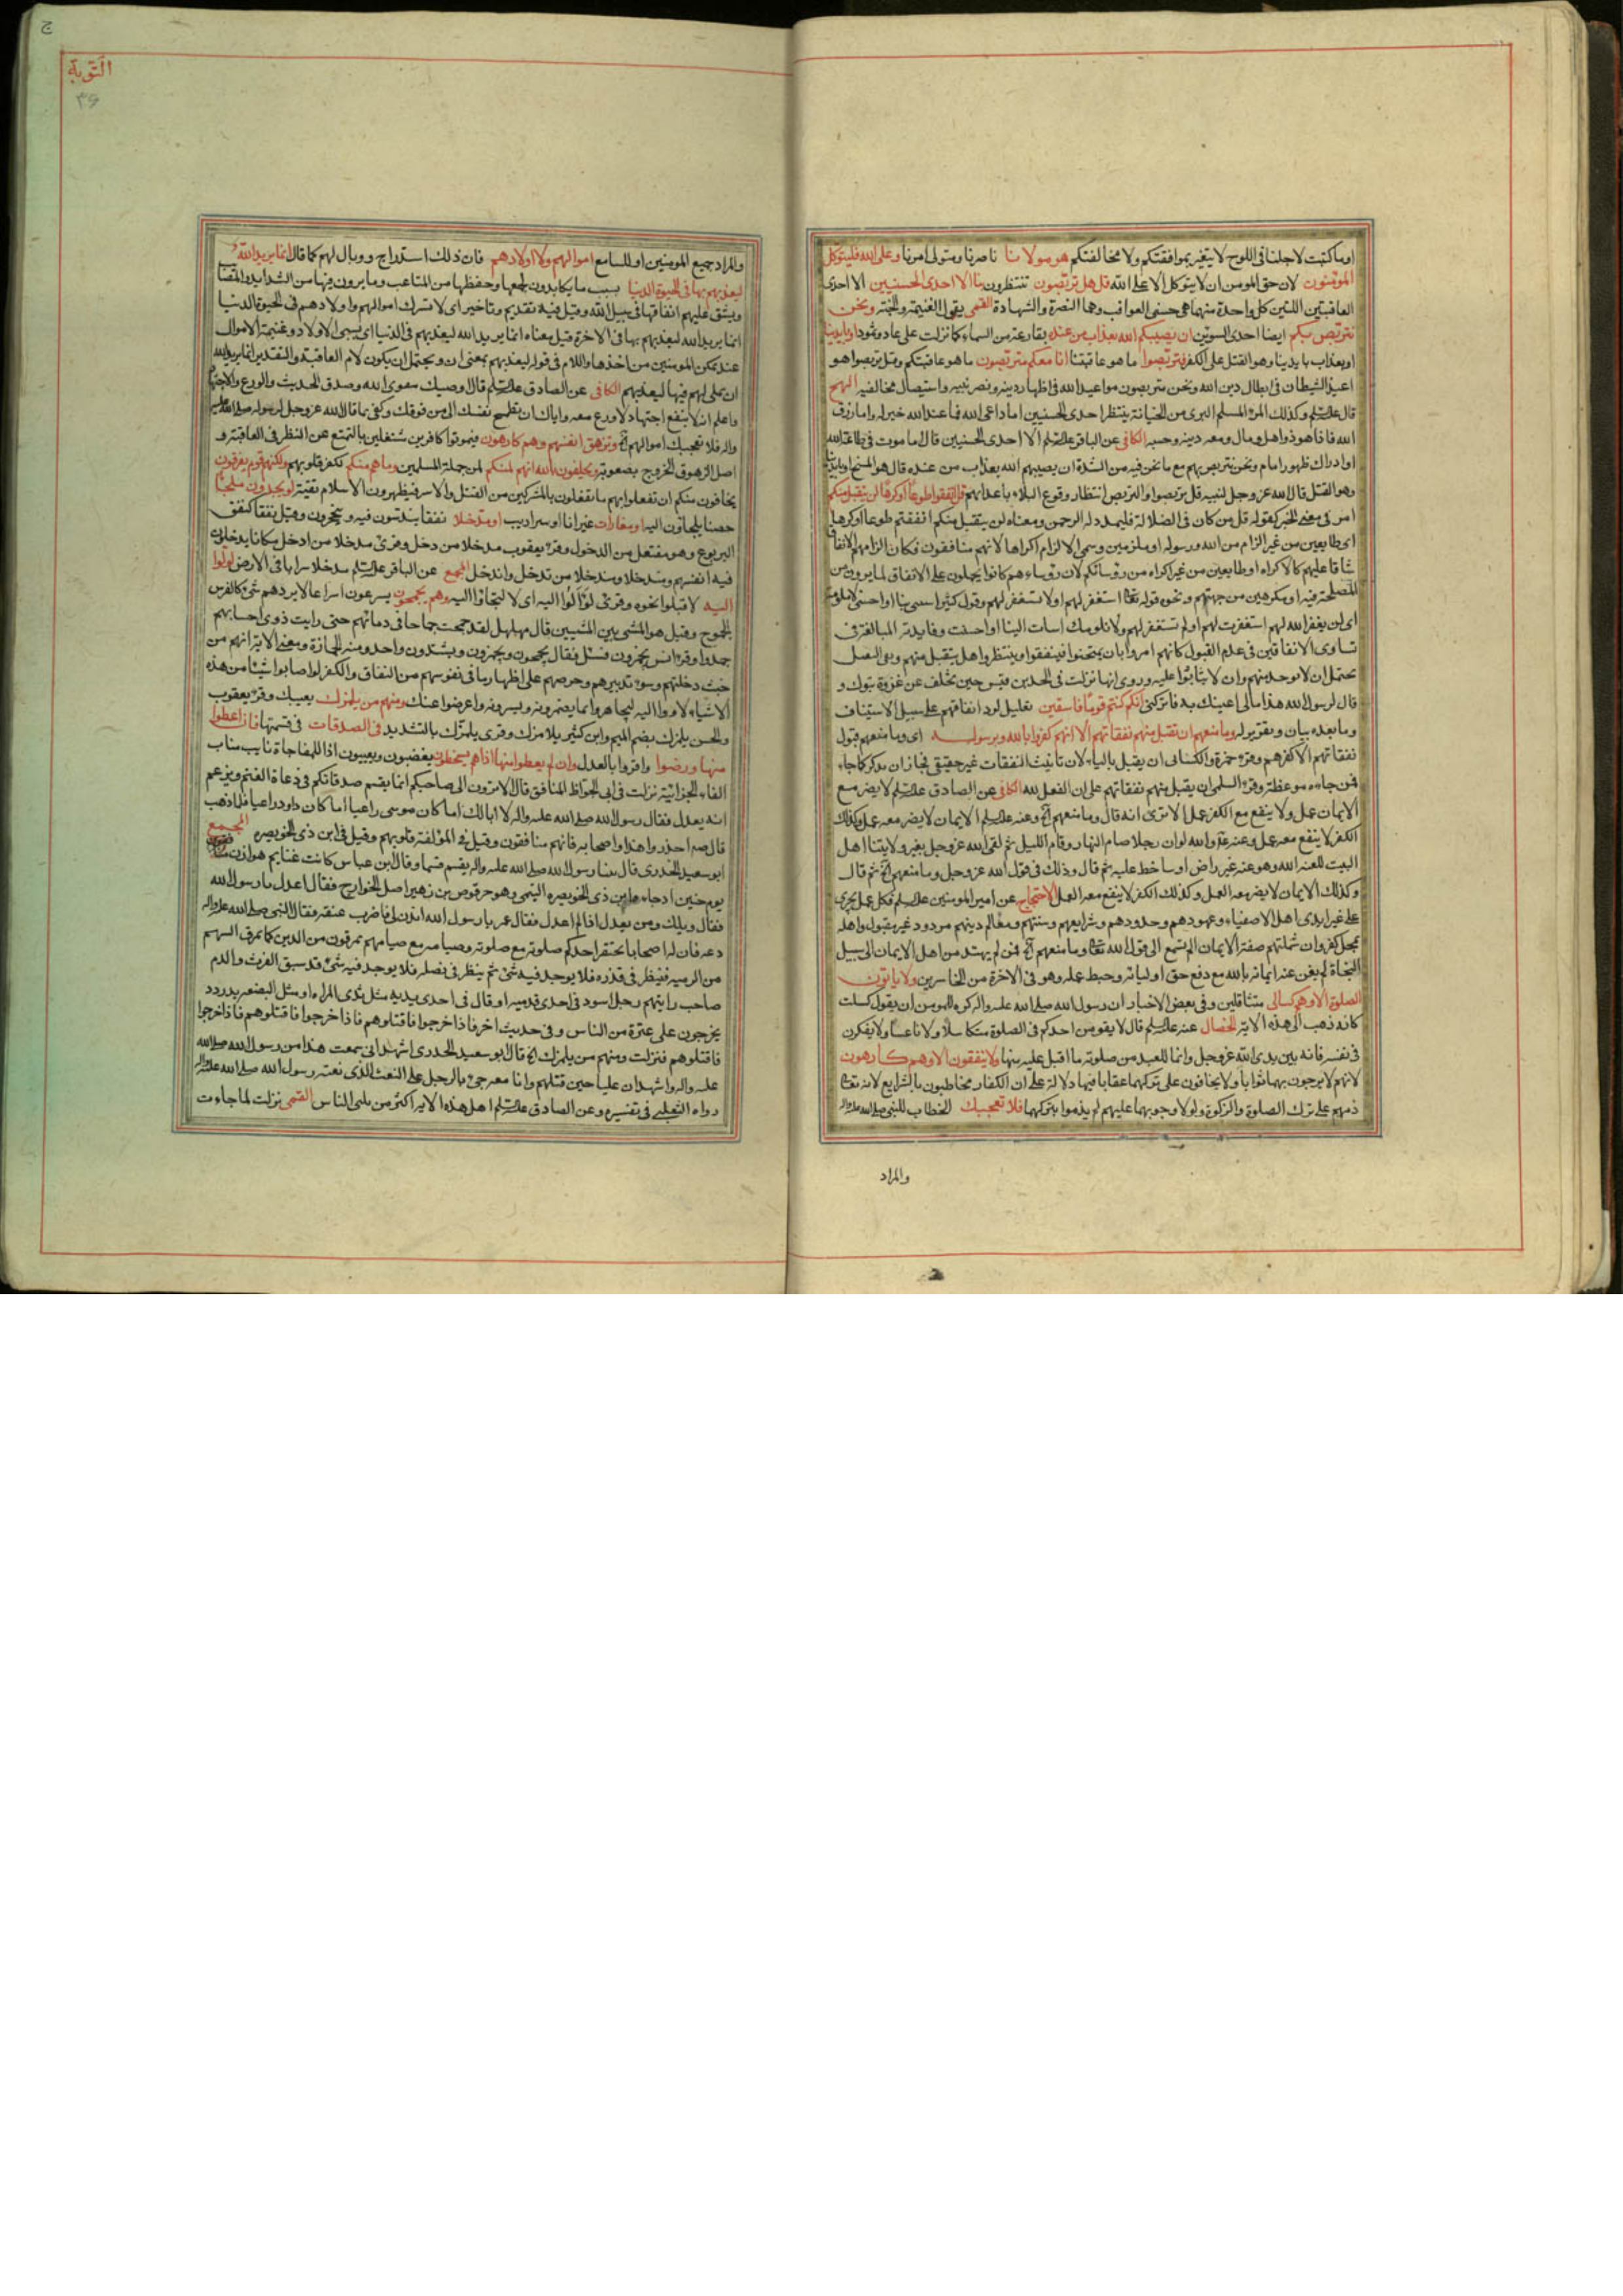 او ما كتبت لاجلنا فى اللوح لا يتغير بموافقتكم ولا مخالفتكم هو مولانا ناصرنا ومتولى امرنا وعلى الله فليتوكل
المؤمنون لان حق المومن ان لا يتوكل الا على الله قل هل تربصون تنتظرون بنا الا احدى الحسنيين الا احدى
العاقبتين اللتين كل واحدة منهما هى حسنى العواقب وهما النصرة والشهادة القمى يقول الغنيمة والجنة ونحن
نتربص بكم ايضا احدى السوئين ان يصيبكم الله بعذاب من عنده بقارعة من السماء كما نزلت على عاد وثمود او بايدينا
او بعذاب بايدينا وهو القتل على الكفر فتربصوا ما هو عاقبتنا انا معكم متربصون ما هو عاقبتكم وقيل تربصوا هو
اعيد الشيطان فى ابطال دين الله ونحن متربصون مواعيد الله فى اظهار دينه ونصر نبيه واستيصال مخالفيه النهج
قال علیه السلم وكذلك المرء المسلم البرى من الخيانة ينتظر احدى الحسنيين اما داعى الله فما عند الله خير له واما رزق
الله فاذا هو ذو اهل ومال ومعه دينه وحسبه الكافى عن الباقر علیه السلم الا احدى الحسنيين قال اما موت فى طاعة الله
او ادراك ظهور امام ونحن نتربص بهم مع ما نحن فيه من الشدة ان يصيبهم الله بعذاب من عنده قال هو المسخ او بايدينا
وهو القتل قال الله عز وجل لنبيه قل تربصوا والتربص انتظار وقوع البلاء باعدائهم قل انفقوا طوعا او كرها لن يتقبل منكم
امر فى معنى الخبر كقوله قل من كان فى الضلالة فليمدد له الرحمن ومعناه لن يتقبل منكم انفقتم طوعا او كرها
اى طايعين من غير الزام من الله ورسوله او ملزمين وسمى الالزام اكراها لانهم منافقون فكان الزامهم الانفاق
شاقا عليهم كالاكراه او طايعين من غير اكراه من رؤسائكم لان رؤساءهم كانوا يحملون على الانفاق لما يرون من
المصلحة فيه او مكرهين من جهتهم ونحوه قوله تعالى استغفر لهم او لا تستغفر لهم وقول كثير اسيئى بنا او احسنى لا ملومة
اى لن يغفر الله لهم استغفرت لهم او لم تستغفر لهم ولا نلومك اسات الينا او احسنت وفايدته المبالغة فى
تساوى الانفاقين فى عدم القبول كانهم امروا بان يمتحنوا فينفقوا وينتظروا هل يتقبل منهم ونفى التقبل
يحتمل ان لا يوخذ منهم وان لا يثابوا عليه وروى انها نزلت فى الجد بن قيس حين تخلف عن غزوة تبوك و
قال لرسول الله هذا مالى اعينك به فاتركنى انكم كنتم قوما فاسقين تعليل لرد انفاقهم على سبيل الاستيناف
وما بعده بيان وتقرير له وما منعهم ان تقبل منهم نفقاتهم الا انهم كفروا بالله وبرسوله اى وما منعهم قبول
نفقاتهم الا كفرهم وقرء حمزة والكسائى ان يقبل بالياء لان تانيث النفقات غير حقيقى فجاز ان يذكر كما جاء
فمن جاءه موعظة وقرء السلمى ان يقبل منهم نفقاتهم على ان الفعل لله الكافى عن الصادق علیه السلم لا يضر مع
الايمان عمل ولا ينفع مع الكفر عمل الا ترى انه قال وما منعهم الخ وعنه علیه السلم الايمان لا يضر معه عمل وكذلك
الكفر لا ينفع معه عمل وعنه ع والله لو ان رجلا صام النهار وقام الليل ثم لقى الله عز وجل بغير ولايتنا اهل
البيت للعنه الله وهو عنه غير راض او ساخط عليه ثم قال وذلك فى قول الله عز وجل وما منعهم الخ ثم قال
وكذلك الايمان لا يضر معه العمل وكذلك الكفر لا ينفع معه العمل الاحتجاج عن امير المومنين علیه السلم فكل عمل يجرى
على غير ايدى اهل الاصفياء وعهودهم وحدودهم وشرايعهم وسننهم ومعالم دينهم مردود غير مقبول واهله
بمحل كفر وان شملتهم صفة الايمان الم تسمع الى قول الله تعالى وما منعهم الخ فمن لم يهتد من اهل الايمان الى سبيل
النجاة لم يغن عنه ايمانه بالله مع دفع حق اوليائه وحبط عمله وهو فى الاخرة من الخاسرين ولا ياتون
الصلوة الا وهم كسالى متثاقلين وفى بعض الاخبار ان رسول الله صلى الله عليه واله كره للمومن ان يقول كسلت
كانه ذهب الى هذه الاية الخصال عنه علیه السلم قال لا يقومن احدكم فى الصلوة متكاسلا ولا ناعسا ولا يفكرن
فى نفسه فانه بين يدى الله عز وجل وانما للعبد من صلوته ما اقبل عليه منها ولا ينفقون الا وهم كارهون
لانهم لا يرجون بهما ثوابا ولا يخافون على تركهما عقابا فيها دلالة على ان الكفار مخاطبون بالشرايع لانه تعالى
ذمهم على ترك الصلوة والزكوة ولولا وجوبهما عليهم لم يذموا بتركهما فلا تعجبك الخطاب للنبى صلى الله عليه واله
والمراد
التوبة
والمراد جميع المومنين او للسامع اموالهم ولا اولادهم فان ذلك استدراج ووبال لهم كما قال انما يريد الله
ليعذبهم بها فى الحيوة الدنيا بسبب ما يكابدون لجمعها وحفظها من المتاعب وما يرون فيها من الشدايد والمصائب
ويشق عليهم انفاقها فى سبيل الله وقيل فيه تقديم وتاخير اى لا تسرك اموالهم واولادهم فى الحيوة الدنيا
انما يريد الله ليعذبهم بها فى الاخرة قيل معناه انما يريد الله ليعذبهم فى الدنيا اى بسبى الاولاد وغنيمة الاموال
عند تمكن المومنين من اخذها واللام فى قوله ليعذبهم بمعنى ان ويحتمل ان يكون لام العاقبة والتقدير انما يريد الله
ان يملى لهم فيها ليعذبهم الكافى عن الصادق علیه السلم قال اوصيك بتقوى الله وصدق الحديث والورع والاجتهاد
واعلم انه لا ينفع اجتهاد لا ورع معه واياك ان تطمح نفسك الى من فوقك وكفى بما قال الله عز وجل لرسوله صلى الله عليه
واله فلا تعجبك اموالهم الخ وتزهق انفسهم وهم كارهون فيموتوا كافرين مشتغلين بالتمتع عن النظر فى العاقبة و
اصل الزهوق الخروج بصعوبة ويحلفون بالله انهم لمنكم لمن جملة المسلمين وما هم منكم لكفر قلوبهم ولكنهم قوم يفرقون
يخافون منكم ان تفعلوا بهم ما تفعلون بالمشركين من القتل والاسر فيظهرون الاسلام تقية لو يجدون ملجئا
حصنا يلجاون اليه او مغارات غيرانا او سراديب او مدخلا نفقا يندسون فيه وينجحرون وقيل نفقا كنفق
اليربوع وهو مفتعل من الدخول وقرء يعقوب مدخلا من دخل وقرئ مدخلا من ادخل مكانا يدخلون
فيه انفسهم ومتدخلا ومندخلا من تدخل واندخل المجمع عن الباقر علیه السلم مدخلا سرابا فى الارض لولوا
اليه لاقبلوا نحوه وقرئ لوالوا اليه اى لالتجاوا اليه وهم يجمحون يسرعون اسراعا لا يردهم شئ كالفرس
الجموح وقيل هو المشى بين المشيين قال مهلهل لقد جمحت جماحا فى دمائهم حتى رايت ذوى احسابهم
خمدوا وقرء انس يجمزون فسئل فقال يجمحون ويجمزون ويشتدون واحد ومنه الجمازة ومعنى الاية انهم من
خبث دخلتهم وسوء تدبيرهم وحرصهم على اظهار ما فى نفوسهم من النفاق والكفر لو اصابوا شيئا من هذه
الاشياء لاووا اليه ليجاهروا بما يضمرونه ويسرونه واعرضوا عنك ومنهم من يلمزك يعيبك وقرء يعقوب
والحسن يلمزك بضم الميم وابن كثير يلامزك وقرئ يلمزك بالتشديد فى الصدقات فى قسمتها فان اعطوا
منها ورضوا واقروا بالعدل وان لم يعطوا منها اذا هم يسخطون يغضبون ويعيبون اذا للمفاجاة نايب مناب
الفاء الجزائية نزلت فى ابى الجواظ المنافق قال الا ترون الى صاحبكم انما يقسم صدقاتكم فى رعاة الغنم ويزعم
انه يعدل فقال رسول الله صلى الله عليه واله لا ابالك اما كان موسى راعيا اما كان داود راعيا فلما ذهب
قال ص احذروا هذا واصحابه فانهم منافقون وقيل فى المؤلفة قلوبهم وقيل فى ابن ذى الخويصره المجمع
ابو سعيد الخدرى قال بينا رسول الله صلى الله عليه واله يقسم قسما وقال ابن عباس كانت غنايم هوازن
يوم حنين اذ جاءه ابن ذى الخويصره التيمى وهو حرقوص بن زهير اصل الخوارج فقال اعدل يا رسول الله
فقال ويلك ومن يعدل اذا لم اعدل فقال عمر يا رسول الله ائذن لى فاضرب عنقه فقال النبى صلى الله عليه واله
دعه فان له اصحابا يحتقر احدكم صلوته مع صلوته وصيامه مع صيامهم يمرقون من الدين كما يمرق السهم
من الرميه فينظر فى قذذه فلا يوجد فيه شئ ثم ينظر فى نصله فلا يوجد فيه شئ قد سبق الفرث والدم
صاحب رايتهم رجل اسود فى احدى قدميه او قال فى احدى يديه مثل ثدى المراءه او مثل البضعه يدردد
يخرجون على عترة من الناس وفى حديث اخر فاذا خرجوا فاقتلوهم فاذا خرجوا فاقتلوهم فاذا خرجوا
فاقتلوهم فنزلت ومنهم من يلمزك الخ قال ابو سعيد الخدرى اشهد انى سمعت هذا من رسول الله صلى الله
عليه واله واشهد ان عليا حين قتلهم وانا معه جئ بالرجل على النعت الذى نعته رسول الله صلى الله عليه واله
رواه الثعلبى فى تفسيره وعن الصادق علیه السلم اهل هذه الايه اكثر من ثلثى الناس القمى نزلت لما جاءت